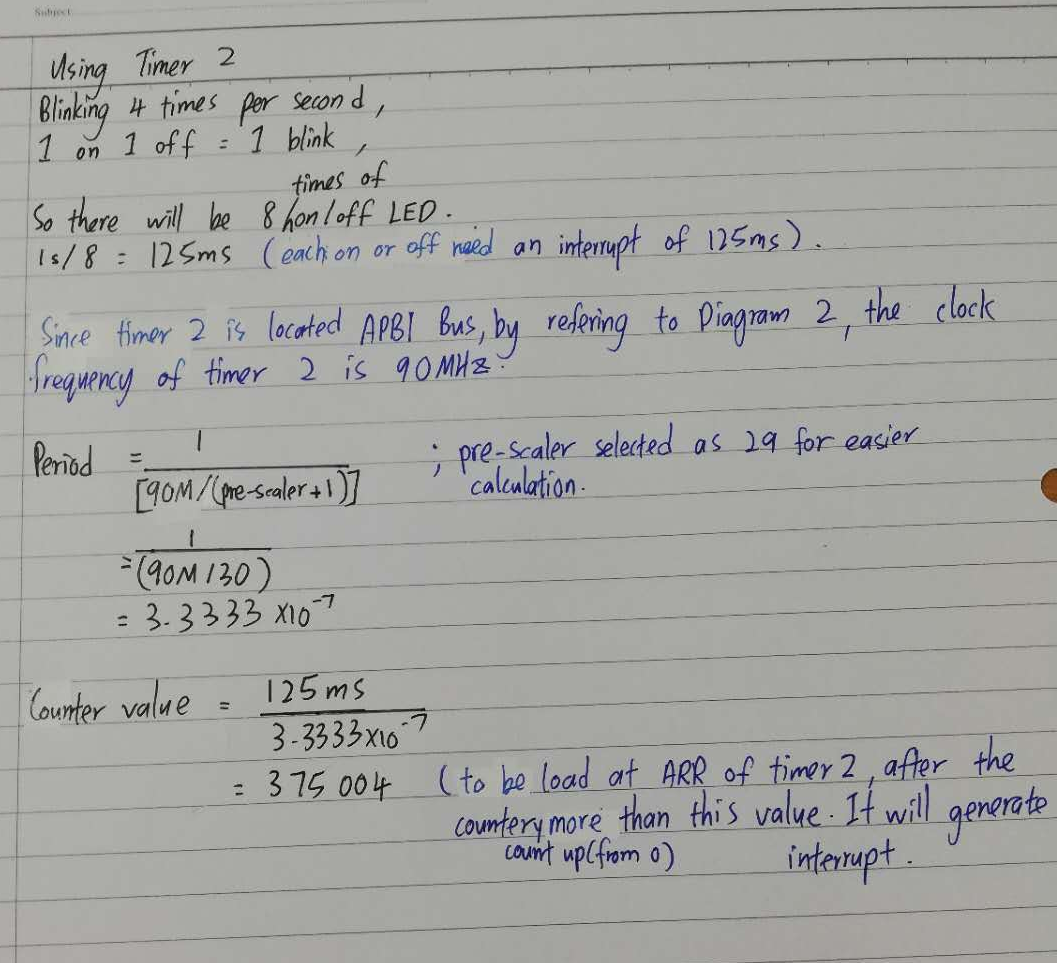 Subject
Using Timer 2
Blinking 4 times per second,
1 on 1 off = 1 blink,
times of
So there will be 8 on/off LED.
1s/8 = 125ms (each on or off need an interrupt of 125ms).
Since timer 2 is located APB1 Bus, by refering to Diagram 2, the clock
frequency of timer 2 is 90MHz.
Period = 1 / [90M/(pre-scaler+1)] ; pre-scaler selected as 29 for easier
calculation.
= 1 / (90M/30)
= 3.3333 x10^-7
Counter value = 125ms / 3.3333x10^-7
= 375004 (to be load at ARR of timer 2, after the
counter more than this value. It will generate
count up(from 0) interrupt.